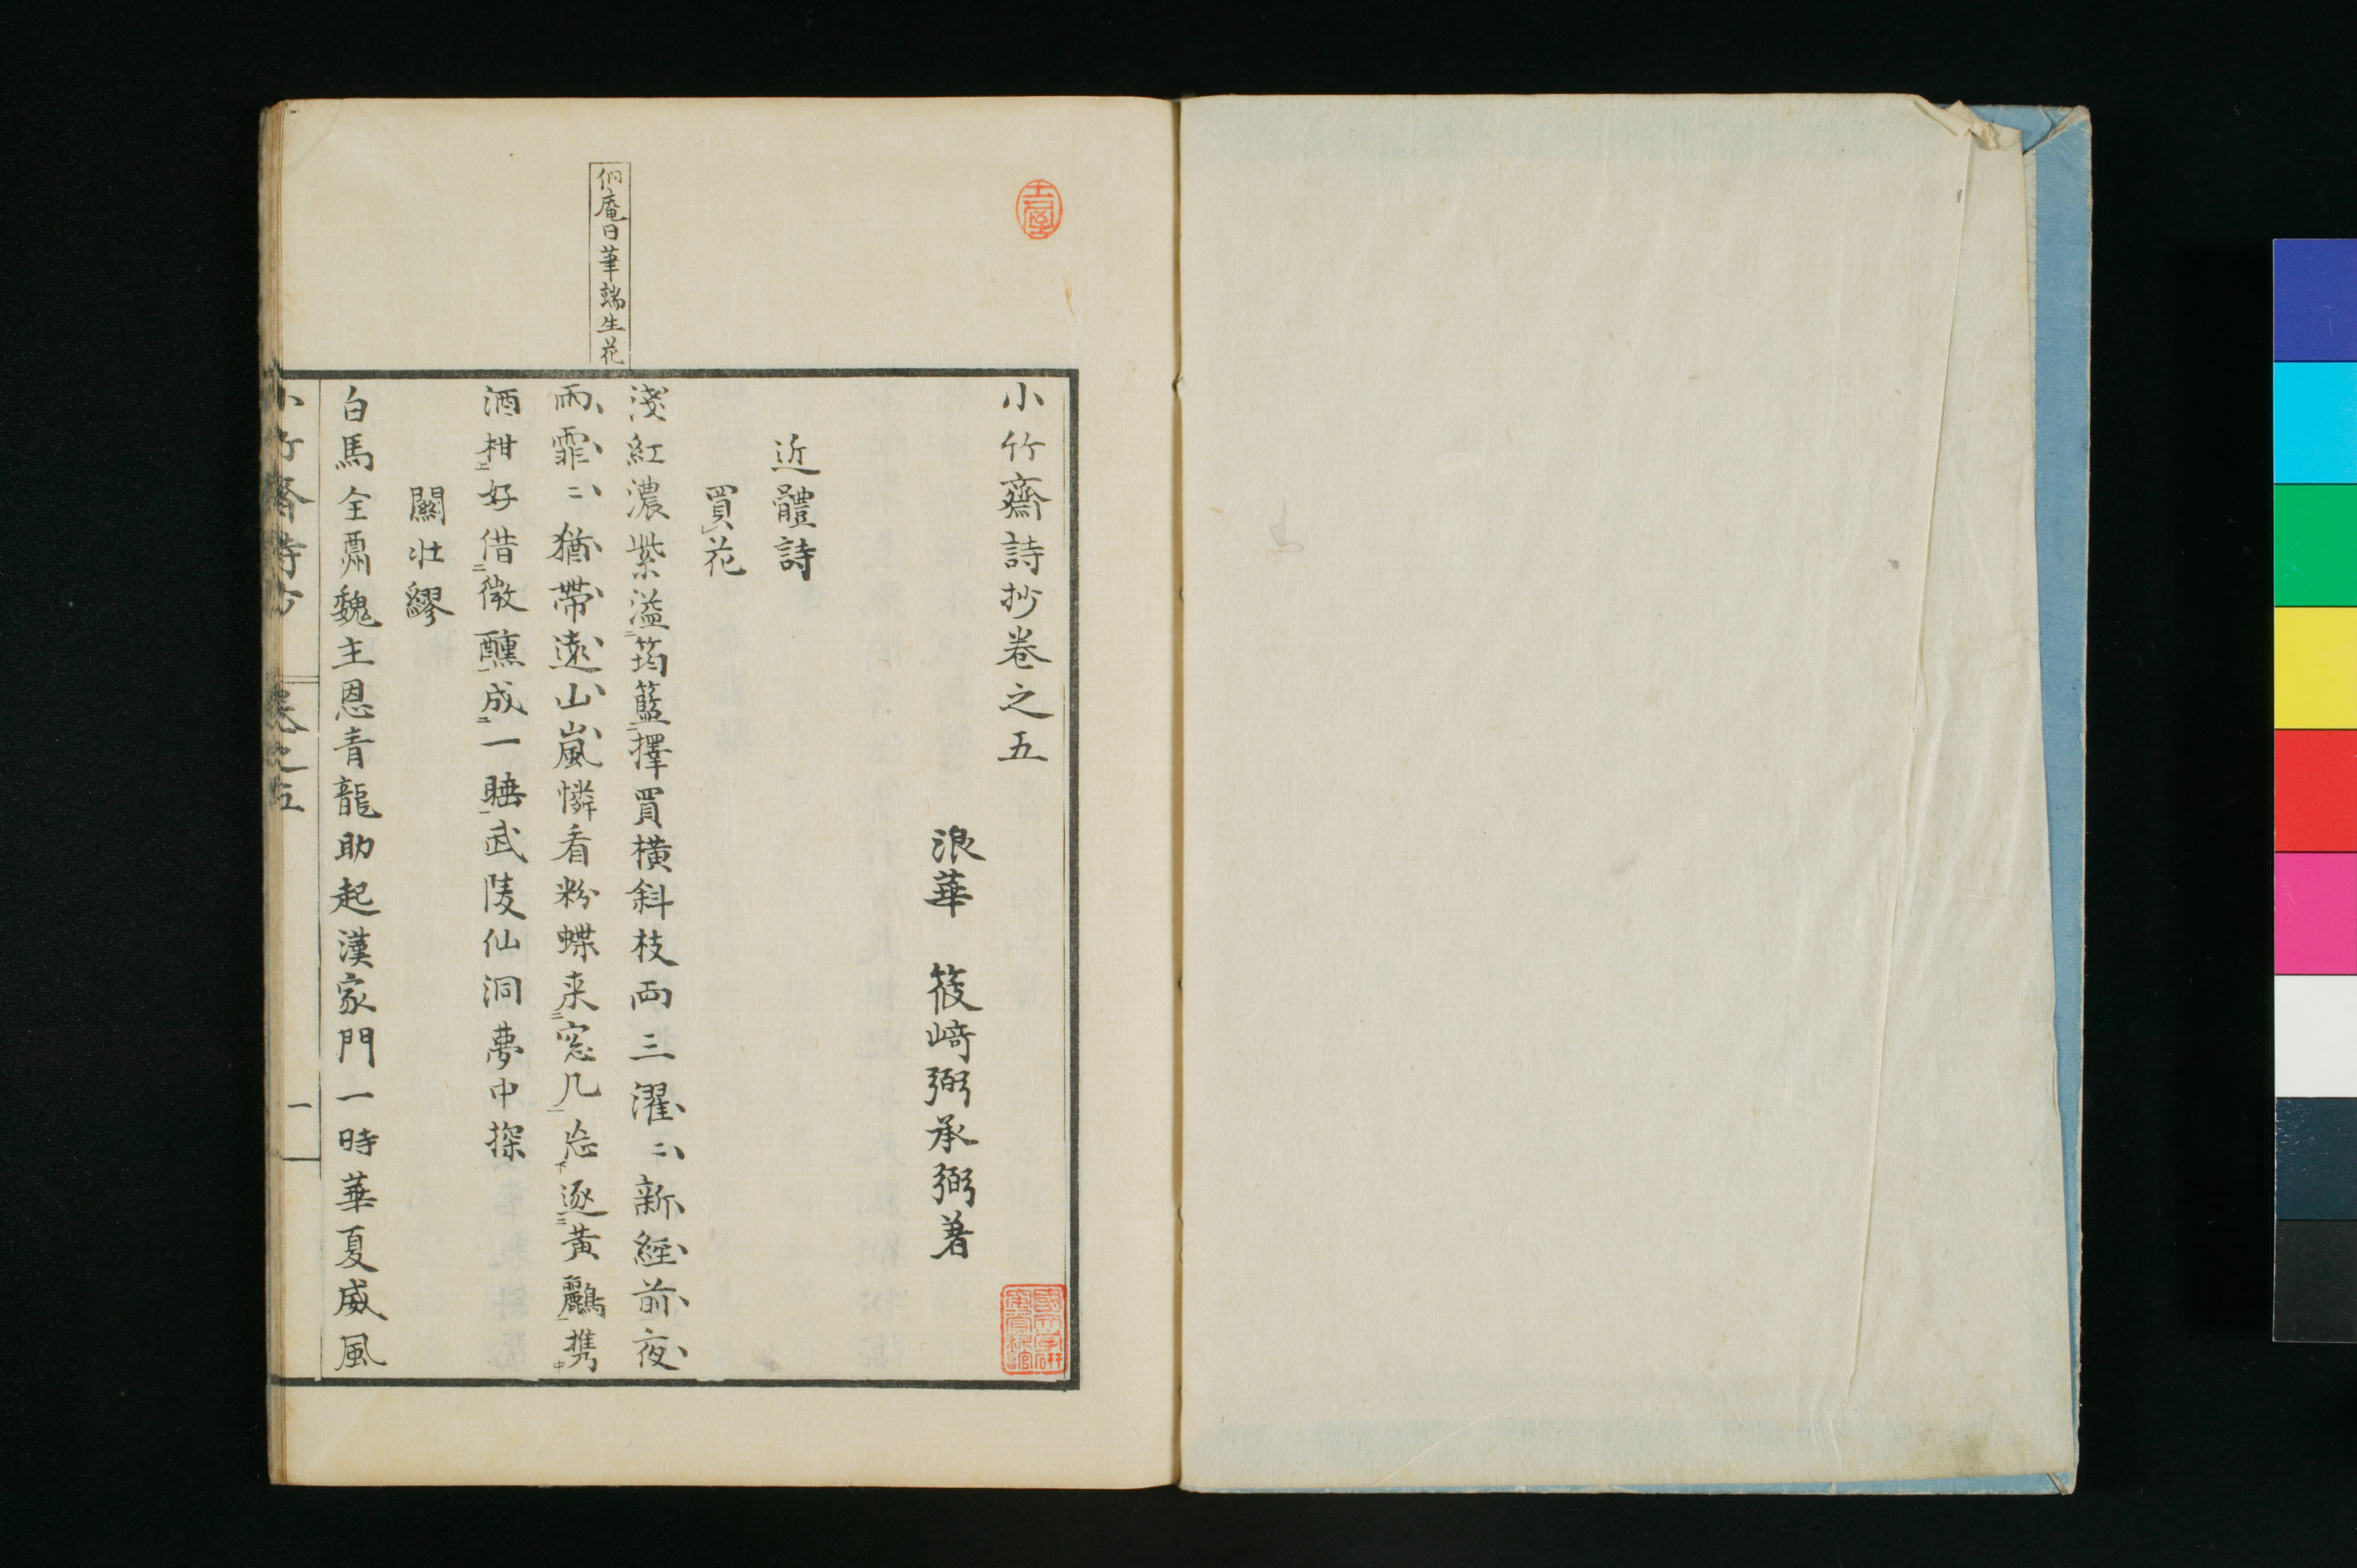 小竹齋詩抄卷之五
浪華 筱﨑弼承弼著
近體詩
買花
淺紅濃紫溢筠籃擇買橫斜枝兩三濯〻新經前夜
雨霏〻猶帶遠山嵐憐看粉蝶来窓几忘逐黃鸝携
酒柑好借微醺成一睡武陵仙洞夢中探
關壯繆
白馬全酬魏主恩青龍助起漢家門一時華夏威風
侗庵曰筆端生花
小竹齋詩抄 卷之五 一